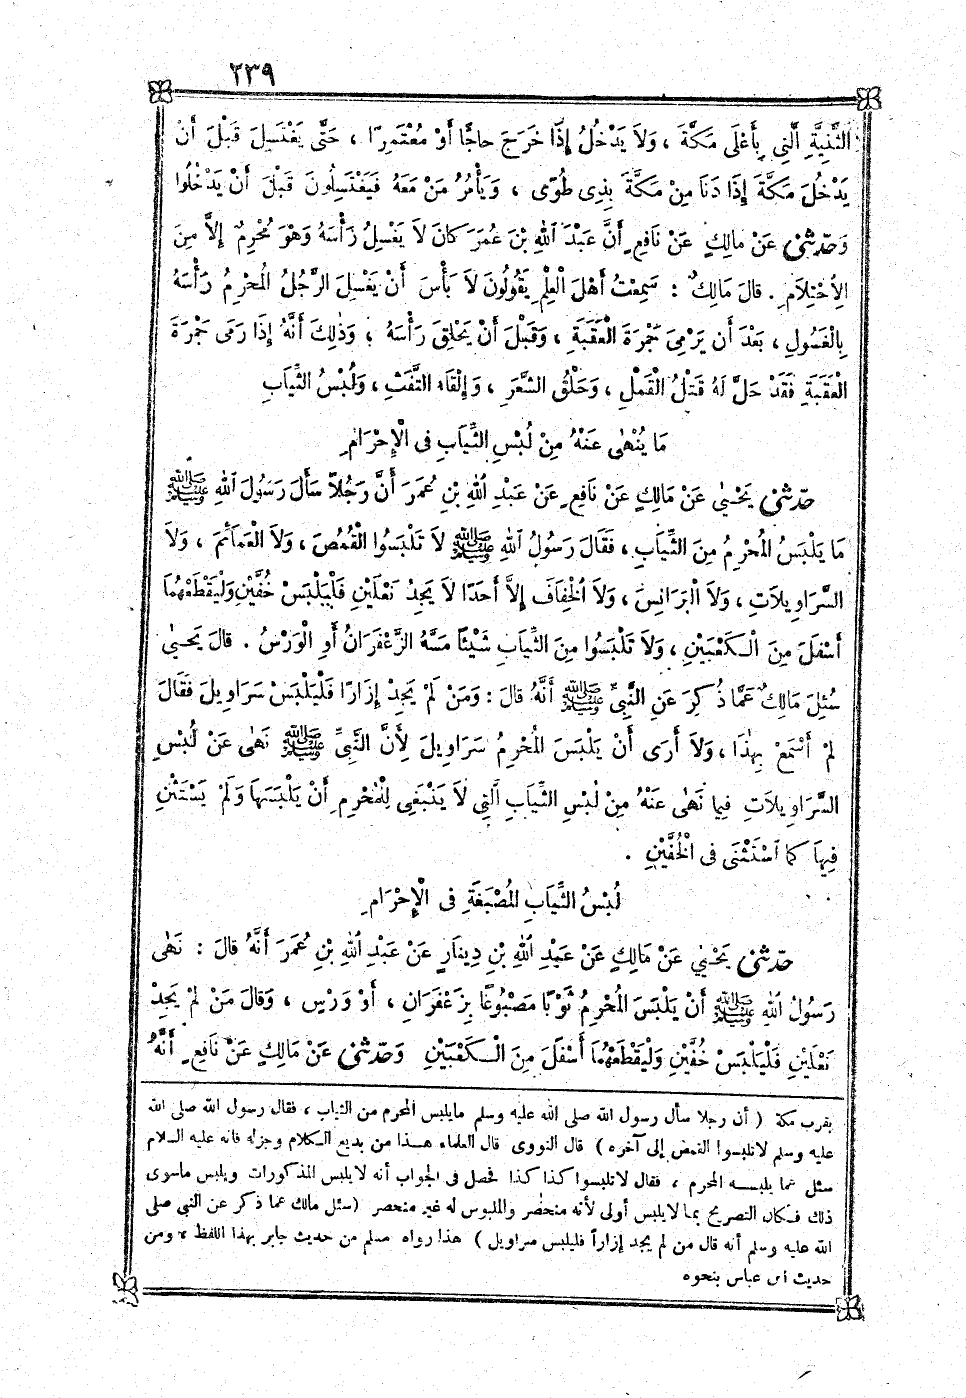 ٢٣٩
الثَّنِيَّةِ الَّتِي بِأَعْلَى مَكَّةَ ، وَلَا يَدْخُلُ إِذَا خَرَجَ حَاجًّا أَوْ مُعْتَمِرًا ، حَتَّى يَغْتَسِلَ قَبْلَ أَنْ
يَدْخُلَ مَكَّةَ إِذَا دَنَا مِنْ مَكَّةَ بِذِى طُوًى ، وَيَأْمُرُ مَنْ مَعَهُ فَيَغْتَسِلُونَ قَبْلَ أَنْ يَدْخُلُوا
وَحَدَّثَنِى عَنْ مَالِكٍ عَنْ نَافِعٍ أَنَّ عَبْدَ اللهِ بْنَ عُمَرَ كَانَ لَا يَغْسِلُ رَأْسَهُ وَهُوَ مُحْرِمٌ إِلَّا مِنَ
الِاحْتِلَامِ . قَالَ مَالِكٌ : سَمِعْتُ أَهْلَ الْعِلْمِ يَقُولُونَ لَا بَأْسَ أَنْ يَغْسِلَ الرَّجُلُ الْمُحْرِمُ رَأْسَهُ
بِالْغَسُولِ ، بَعْدَ أَنْ يَرْمِىَ جَمْرَةَ الْعَقَبَةِ ، وَقَبْلَ أَنْ يَحْلِقَ رَأْسَهُ ؛ وَذٰلِكَ أَنَّهُ إِذَا رَمَى جَمْرَةَ
الْعَقَبَةِ فَقَدْ حَلَّ لَهُ قَتْلُ الْقَمْلِ ، وَحَلْقُ الشَّعَرِ ، وَإِلْقَاءُ التَّفَثِ ، وَلُبْسُ الثِّيَابِ
مَا يُنْهٰى عَنْهُ مِنْ لُبْسِ الثِّيَابِ فِى الْإِحْرَامِ
حَدَّثَنِى يَحْيٰى عَنْ مَالِكٍ عَنْ نَافِعٍ عَنْ عَبْدِ اللهِ بْنِ عُمَرَ أَنَّ رَجُلًا سَأَلَ رَسُولَ اللهِ ﷺ
مَا يَلْبَسُ الْمُحْرِمُ مِنَ الثِّيَابِ ، فَقَالَ رَسُولُ اللهِ ﷺ لَا تَلْبَسُوا الْقُمُصَ ، وَلَا الْعَمَائِمَ ، وَلَا
السَّرَاوِيلَاتِ ، وَلَا الْبَرَانِسَ ، وَلَا الْخِفَافَ إِلَّا أَحَدًا لَا يَجِدُ نَعْلَيْنِ فَلْيَلْبَسْ خُفَّيْنِ وَلْيَقْطَعْهُمَا
أَسْفَلَ مِنَ الْكَعْبَيْنِ ، وَلَا تَلْبَسُوا مِنَ الثِّيَابِ شَيْئًا مَسَّهُ الزَّعْفَرَانُ أَوِ الْوَرْسُ . قَالَ يَحْيٰى
سُئِلَ مَالِكٌ عَمَّا ذُكِرَ عَنِ النَّبِىِّ ﷺ أَنَّهُ قَالَ : وَمَنْ لَمْ يَجِدْ إِزَارًا فَلْيَلْبَسْ سَرَاوِيلَ فَقَالَ
لَمْ أَسْمَعْ بِهٰذَا ، وَلَا أَرَى أَنْ يَلْبَسَ الْمُحْرِمُ سَرَاوِيلَ لِأَنَّ النَّبِىَّ ﷺ نَهٰى عَنْ لُبْسِ
السَّرَاوِيلَاتِ فِيمَا نَهٰى عَنْهُ مِنْ لُبْسِ الثِّيَابِ الَّتِى لَا يَنْبَغِى لِلْمُحْرِمِ أَنْ يَلْبَسَهَا وَلَمْ يَسْتَثْنِ
فِيهَا كَمَا اسْتَثْنَى فِى الْخُفَّيْنِ .
لُبْسُ الثِّيَابِ الْمُصْبَغَةِ فِى الْإِحْرَامِ
حَدَّثَنِى يَحْيٰى عَنْ مَالِكٍ عَنْ عَبْدِ اللهِ بْنِ دِينَارٍ عَنْ عَبْدِ اللهِ بْنِ عُمَرَ أَنَّهُ قَالَ : نَهٰى
رَسُولُ اللهِ ﷺ أَنْ يَلْبَسَ الْمُحْرِمُ ثَوْبًا مَصْبُوغًا بِزَعْفَرَانٍ ، أَوْ وَرْسٍ ، وَقَالَ مَنْ لَمْ يَجِدْ
نَعْلَيْنِ فَلْيَلْبَسْ خُفَّيْنِ وَلْيَقْطَعْهُمَا أَسْفَلَ مِنَ الْكَعْبَيْنِ وَحَدَّثَنِى عَنْ مَالِكٍ عَنْ نَافِعٍ أَنَّهُ
بقرب مكة ( أن رجلا سأل رسول الله صلى الله عليه وسلم مايلبس المحرم من الثياب ، فقال رسول الله صلى الله
عليه وسلم لاتلبسوا القمص إلى آخره ) قال النووى قال العلماء هذا من بديع الكلام وجزله فانه عليه السلام
سئل عما يلبسه المحرم ، فقال لاتلبسوا كذا كذا فحصل فى الجواب أنه لايلبس المذكورات ويلبس ماسوى
ذلك فكان التصريح بما لايلبس أولى لأنه منحصر والملبوس له غير منحصر (سئل مالك عما ذكر عن النبى صلى
الله عليه وسلم أنه قال من لم يجد إزاراً فليلبس سراويل ) هذا رواه مسلم من حديث جابر بهذا اللفظ ، ومن
حديث ابن عباس بنحوه